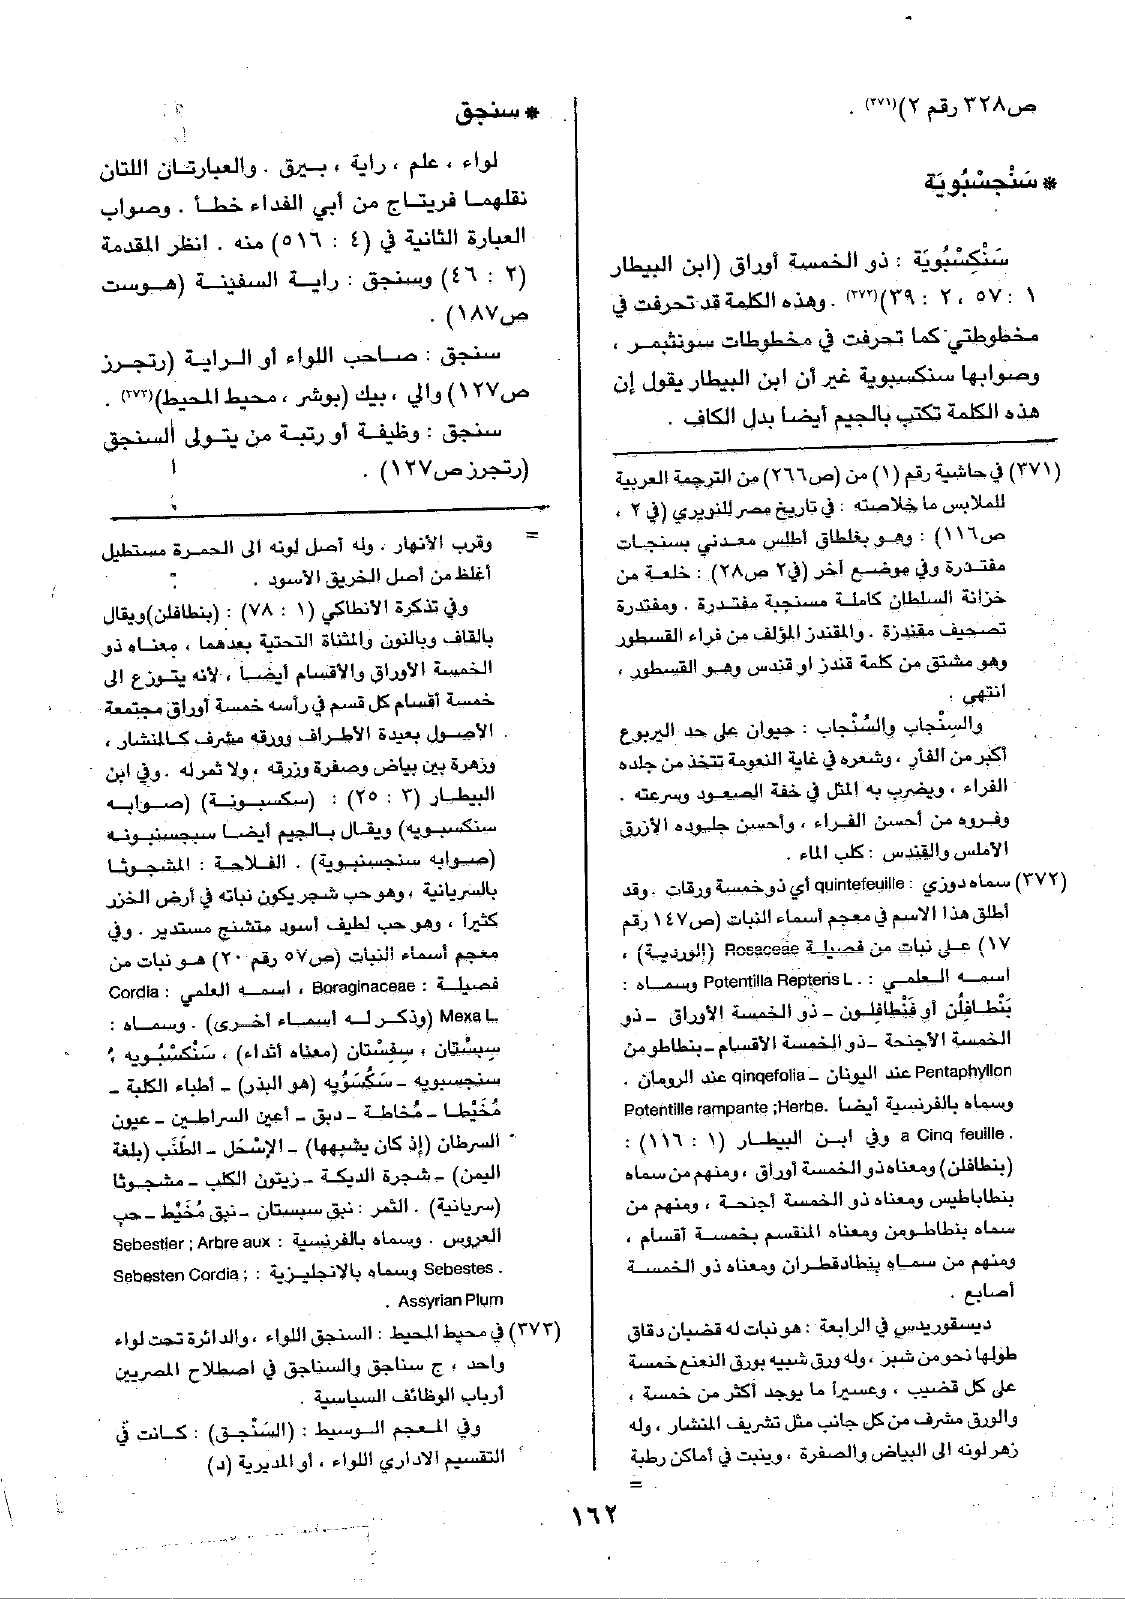 ص٣٢٨ رقم ٢)(٣٧١) .
* سَنْجسْبُويَة
سَنْكِسْبُويَة : ذو الخمسة أوراق (ابن البيطار
١ : ٥٧ ، ٢ : ٣٩)(٣٧٢) . وهذه الكلمة قد تحرفت في
مخطوطتي كما تحرفت في مخطوطات سونثيمر ،
وصوابها سنكسبوية غير أن ابن البيطار يقول إن
هذه الكلمة تكتب بالجيم أيضا بدل الكاف .
(٣٧١) في حاشية رقم (١) من (ص٢٦٦) من الترجمة العربية
للملابس ما خلاصته : في تاريخ مصر للنويري (في ٢ ،
ص١١٦) : وهو بغلطاق أطلس معدني بسنجات
مقتدرة وفي موضع آخر (في٢ ص٢٨) : خلعة من
خزانة السلطان كاملة مسنجبة مفتدرة . ومفتدرة
تصحيف مقندزة . والمقندز المؤلف من فراء القسطور
وهو مشتق من كلمة قندز او قندس وهو القسطور ،
انتهى .
والسِنْجاب والسُنْجاب : حيوان على حد اليربوع
أكبر من الفأر ، وشعره في غاية النعومة تتخذ من جلده
الفراء ، ويضرب به المثل في خفة الصعود وسرعته .
وفروه من أحسن الفراء ، وأحسن جلوده الأزرق
الأملس والقندس : كلب الماء .
(٣٧٢) سماه دوزي : quintefeuille أي ذو خمسة ورقات . وقد
أطلق هذا الاسم في معجم أسماء النبات (ص١٤٧ رقم
١٧) على نبات من فصيلة Rosaceae (الوردية) ،
اسمه العلمي : Potentilla Repteris L. وسماه :
بَنْطافِلُن أو فَنْطافِلون - ذو الخمسة الأوراق - ذو
الخمسة الأجنحة - ذو الخمسة الأقسام - بنطاطو من
Pentaphyllon عند اليونان - qinqefolia عند الرومان .
وسماه بالفرنسية أيضا Potentille rampante ;Herbe.
a Cinq feuille. وفي ابن البيطار (١ : ١١٦) :
(بنطافلن) ومعناه ذو الخمسة أوراق ، ومنهم من سماه
بنطاباطيس ومعناه ذو الخمسة أجنحة ، ومنهم من
سماه بنطاطومن ومعناه المنقسم بخمسة أقسام ،
ومنهم من سماه بنطادقطران ومعناه ذو الخمسة
أصابع .
ديسقوريدس في الرابعة : هو نبات له قضبان دقاق
طولها نحو من شبر ، وله ورق شبيه بورق النعنع خمسة
على كل قضيب ، وعسيراً ما يوجد أكثر من خمسة ،
والورق مشرف من كل جانب مثل تشريف المنشار ، وله
زهر لونه الى البياض والصفرة ، وينبت في أماكن رطبة
=
* سنجق
لواء ، علم ، راية ، بيرق . والعبارتان اللتان
نقلهما فريتاج من أبي الفداء خطأ . وصواب
العبارة الثانية في (٤ : ٥١٦) منه . انظر المقدمة
(٢ : ٤٦) وسنجق : راية السفينة (هوست
ص١٨٧) .
سنجق : صاحب اللواء أو الراية (رتجرز
ص١٢٧) والي ، بيك (بوشر ، محيط المحيط)(٣٧٣) .
سنجق : وظيفة أو رتبة من يتولى السنجق
(رتجرز ص١٢٧) .
= وقرب الأنهار . وله أصل لونه الى الحمرة مستطيل
أغلظ من أصل الخريق الأسود .
وفي تذكرة الانطاكي (١ : ٧٨) : (بنطافلن) ويقال
بالقاف وبالنون والمثناة التحتية بعدهما ، معناه ذو
الخمسة الأوراق والأقسام أيضا ، لأنه يتوزع الى
خمسة أقسام كل قسم في رأسه خمسة أوراق مجتمعة
الأصول بعيدة الأطراف وورقه مشرف كالمنشار ،
وزهرة بين بياض وصفرة وزرقه ، ولا ثمر له . وفي ابن
البيطار (٣ : ٢٥) : (سكسبونة) (صوابه
سنكسبويه) ويقال بالجيم أيضا سبجسنبونه
(صوابه سنجسنبوية) . الفلاحة : المشجوثا
بالسريانية ، وهو حب شجر يكون نباته في أرض الخزر
كثيراً ، وهو حب لطيف أسود متشنج مستدير . وفي
معجم أسماء النبات (ص٥٧ رقم ٢٠) هو نبات من
فصيلة : Boraginaceae ، اسمه العلمي : Cordia
Mexa L (وذكر له أسماء أخرى) . وسماه :
سِبِسْتان ، سِفِسْتان (معناه أثداء) ، سَنْكسْبُويه ؛
سنجسبويه - سَكسُوَيه (هو البذر) - أطباء الكلبة -
مُخَيْطا - مُخاطة - دبق - أعين السراطين - عيون
السرطان (إذ كان يشبهها) - الإسْحَل - الطَنَب (بلغة
اليمن) - شجرة الديكة - زيتون الكلب - مشجوثا
(سريانية) . الثمر : نبق سبستان - نبق مُخَيْط - حب
العروس . وسماه بالفرنسية : Sebestier ; Arbre aux
Sebestes. وسماه بالانجليزية : ; Sebesten Cordia
Assyrian Plum .
(٣٧٣) في محيط المحيط : السنجق اللواء ، والدائرة تحت لواء
واحد ، ج سناجق والسناجق في اصطلاح المصريين
أرباب الوظائف السياسية .
وفي المعجم الوسيط : (السَنْجق) : كانت في
التقسيم الاداري اللواء ، أو المديرية (د)
١٦٢